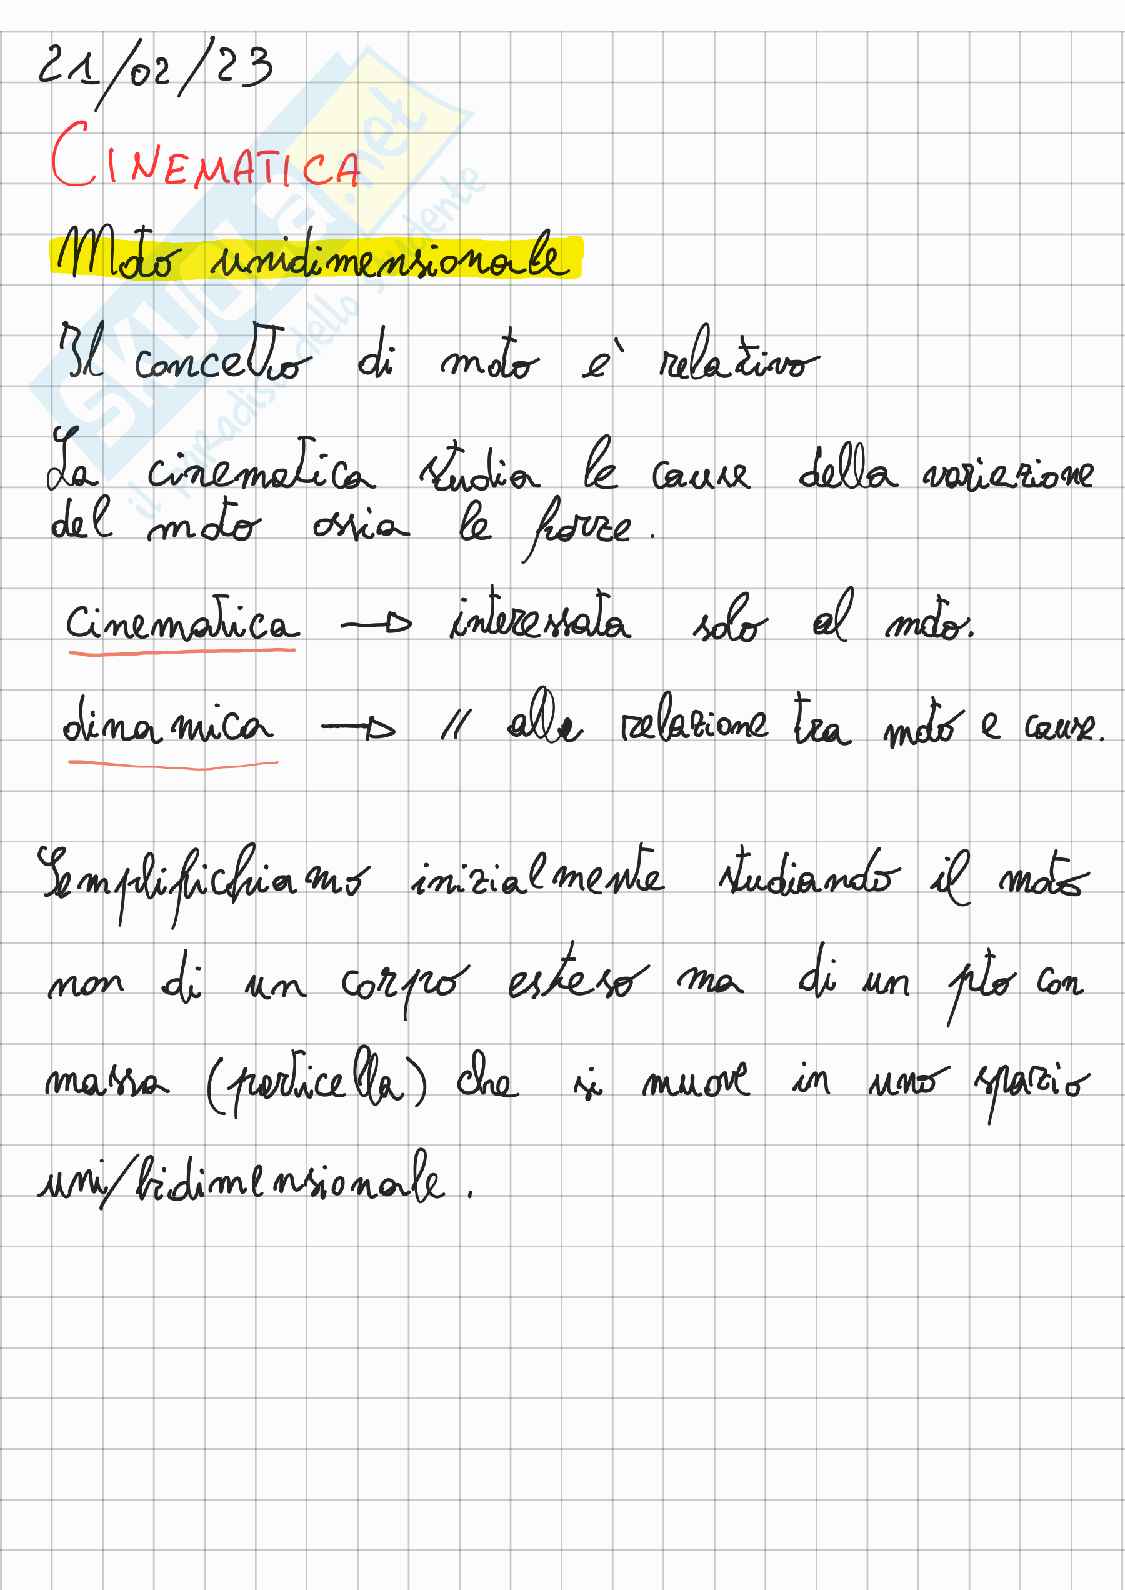 21/02/23
CINEMATICA
Moto unidimensionale
Il concetto di moto e' relativo
La cinematica studia le cause della variazione
del moto ossia le forze.
cinematica → interessata solo al moto.
dinamica → // alle relazione tra moto e cause.
Semplifichiamo inizialmente studiando il moto
non di un corpo esteso ma di un pto con
massa (particella) che si muove in uno spazio
uni/bidimensionale.
SKUOLA.net
il paradiso dello studente